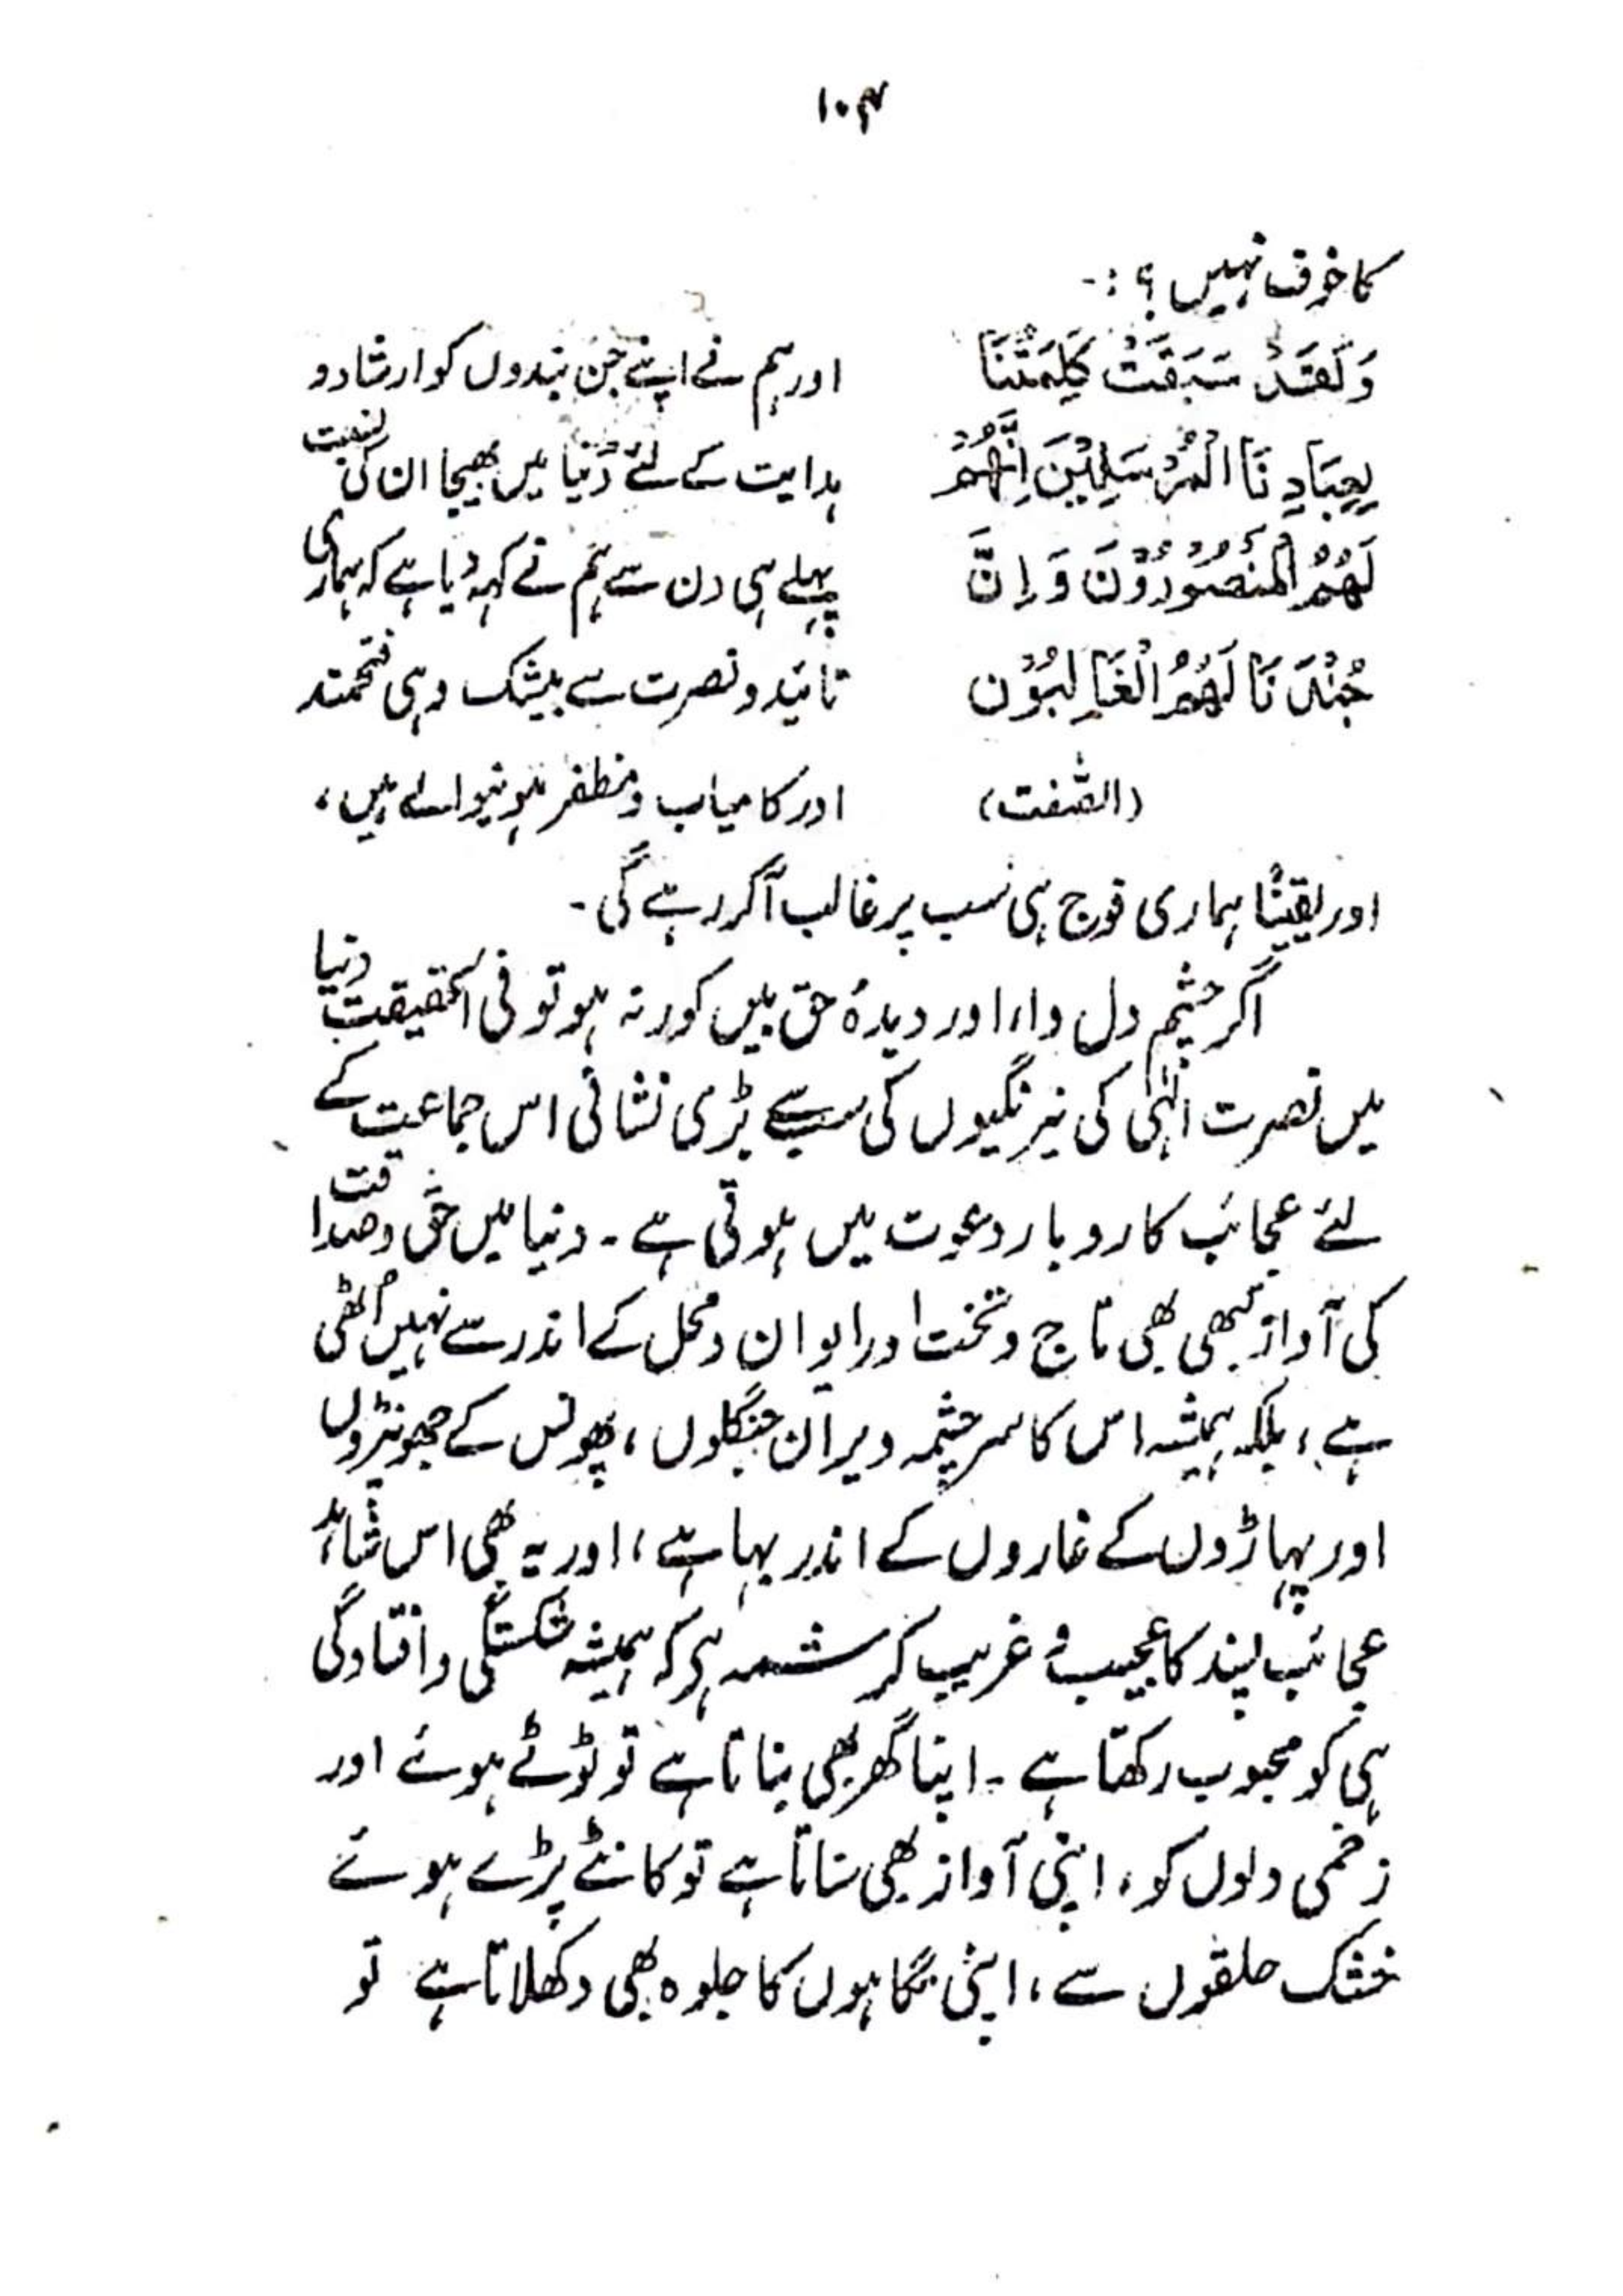 ۱۰۴
کا خوف نہیں؟:-
وَلَقَدْ سَبَقَتْ كَلِمَتُنَا
لِعِبَادِنَا الْمُرْسَلِيْنَ اِنَّهُمْ
لَهُمُ الْمَنْصُوْرُوْنَ وَاِنَّ
جُنْدَنَا لَهُمُ الْغَالِبُوْن
(الصّٰفت)
اور ہم نے اپنے جن بندوں کو ارشاد و
ہدایت کے لئے دُنیا میں بھیجا ان کی نسبت
پہلے ہی دن سے ہم نے کہہ دیا ہے کہ ہماری
تائید و نصرت سے بیشک وہی فتحمند
اور کامیاب و مظفر ہونیوالے ہیں،
اور یقیناً ہماری فوج ہی سب پر غالب آکر رہے گی۔
اگر چشم دل وا، اور دیدۂ حق بیں کور نہ ہو تو فی الحقیقت دنیا
میں نصرت الٰہی کی نیرنگیوں کی سب سے بڑی نشانی اس جماعت کے
لئے عجائب کاروبار دعوت میں ہوتی ہے۔ دنیا میں حق و صداقت
کی آواز کبھی بھی تاج و تخت اور ایوان و محل کے اندر سے نہیں اُٹھی
ہے، بلکہ ہمیشہ اس کا سرچشمہ ویران جنگلوں، پھونس کے جھونپڑوں
اور پہاڑوں کے غاروں کے اندر بہا ہے، اور یہ بھی اس شاہد
عجائب پسند کا عجیب و غریب کرشمہ ہی کہ ہمیشہ شکستگی و افتادگی
ہی کو محبوب رکھتا ہے۔ اپنا گھر بھی بناتا ہے تو ٹوٹے ہوئے اور
زخمی دلوں کو، اپنی آواز بھی سناتا ہے تو کانٹے پڑے ہوئے
خشک حلقوں سے، اپنی نگاہوں کا جلوہ بھی دکھلاتا ہے تو